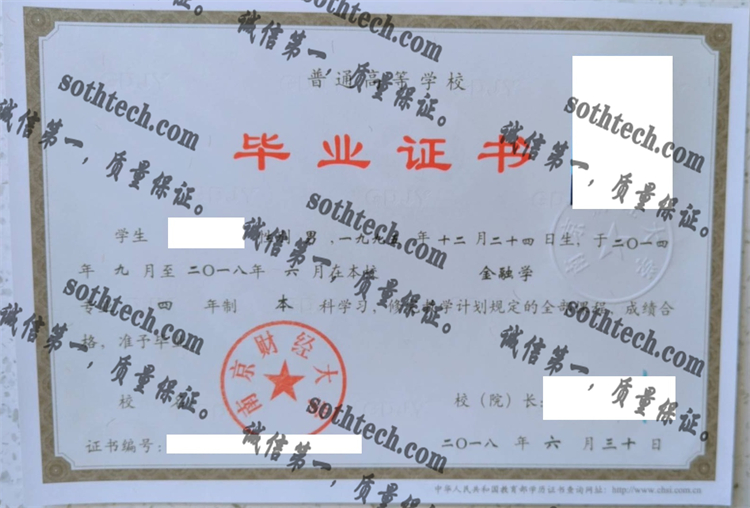 普通高等学校
毕业证书
学生 性别 男,一九九五年 十二月二十四日生,于二〇一四
年 九 月至 二〇一八年 六 月在本校 金融学
专业 四 年制 本 科学习,修 教学计划规定的全部课程,成绩合
格,准予毕业
南京财经大
校 校(院)长:
证书编号: 二〇一八 年 六 月 三十 日
中华人民共和国教育部学历证书查询网址:http://www.chsi.com.cn
sothtech.com
诚信第一,质量保证。
sothtech.com
诚信第一,质量保证。
sothtech.com
诚信第一,质量保证。
sothtech.com
诚信第一,质量保证。
sothtech.com
诚信第一,质量保证。
sothtech.com
诚信第一,质量保证。
sothtech.com
诚信第一,质量保证。
sothtech.com
诚信第一,质量保证。